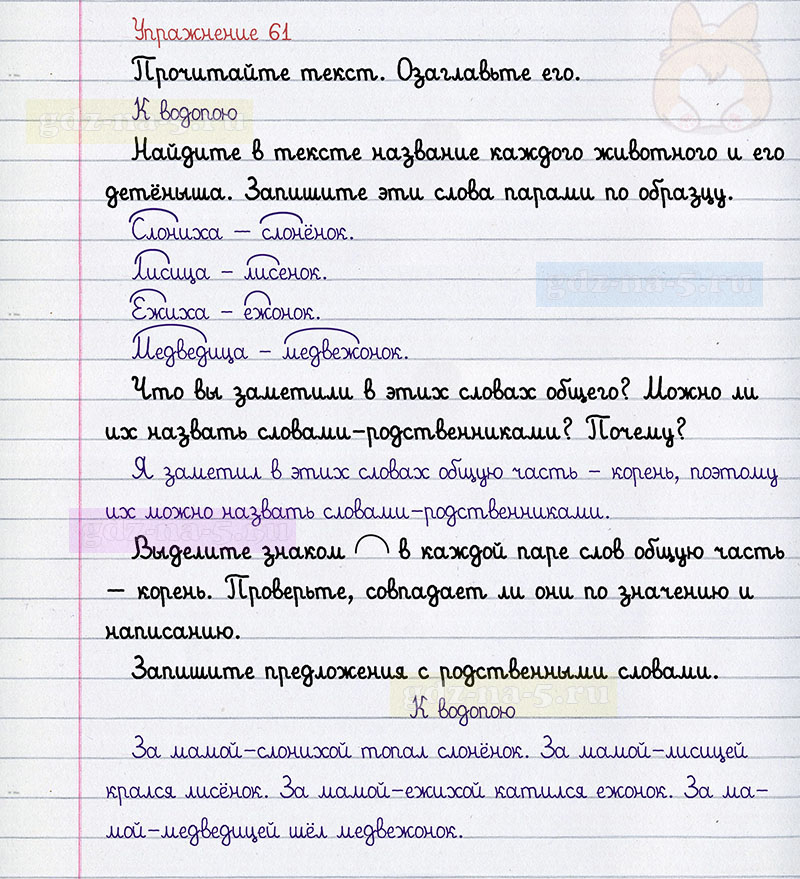 Упражнение 61
Прочитайте текст. Озаглавьте его.
К водопою
gdz-na-5.ru
Найдите в тексте название каждого животного и его
детёныша. Запишите эти слова парами по образцу.
Слониха – слонёнок.
Лисица – лисенок.
gdz-na-5.ru
Ежиха – ежонок.
Медведица – медвежонок.
Что вы заметили в этих словах общего? Можно ли
их назвать словами-родственниками? Почему?
Я заметил в этих словах общую часть – корень, поэтому
их можно назвать словами-родственниками.
gdz-na-5.ru
Выделите знаком в каждой паре слов общую часть
– корень. Проверьте, совпадает ли они по значению и
написанию.
Запишите предложения с родственными словами.
gdz-na-5.ru
К водопою
За мамой-слонихой топал слонёнок. За мамой-лисицей
крался лисёнок. За мамой-ежихой катился ежонок. За ма-
мой-медведицей шёл медвежонок.